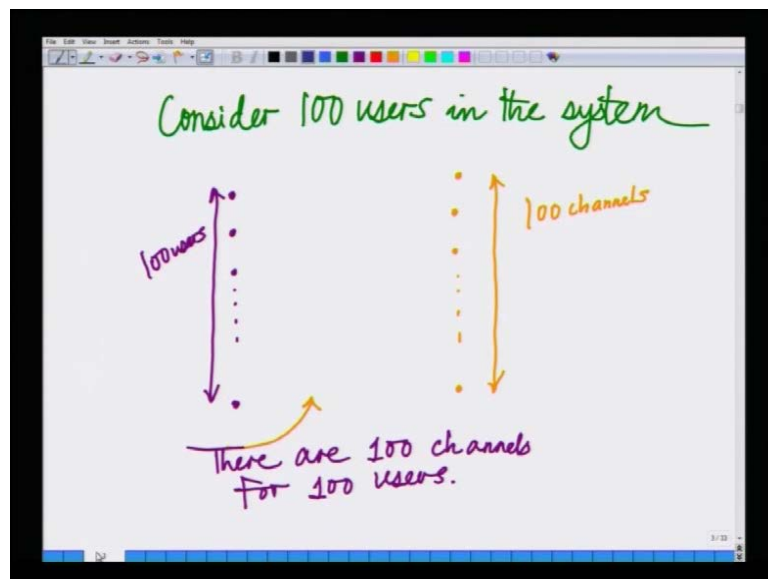 File Edit View Insert Actions Tools Help
Consider 100 users in the system
100 users
100 channels
There are 100 channels
For 100 users.
3/33